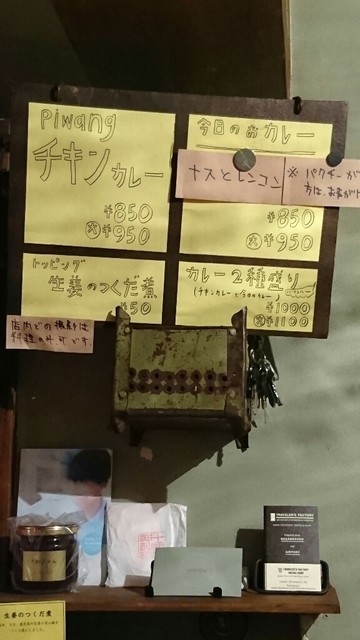 Piwang
チキンカレー
¥850
大¥950
今日のおカレー
ナスとレンコン
※パクチーが
方は、お気が
¥850
大¥950
トッピング
生姜のつくだ煮
¥50
カレー2種盛り
(チキンカレーと今日のカレー)
¥1000
大¥1100
店内での撮影は
料理のみ可です
生姜のつくだ煮
TRAVELER'S FACTORY